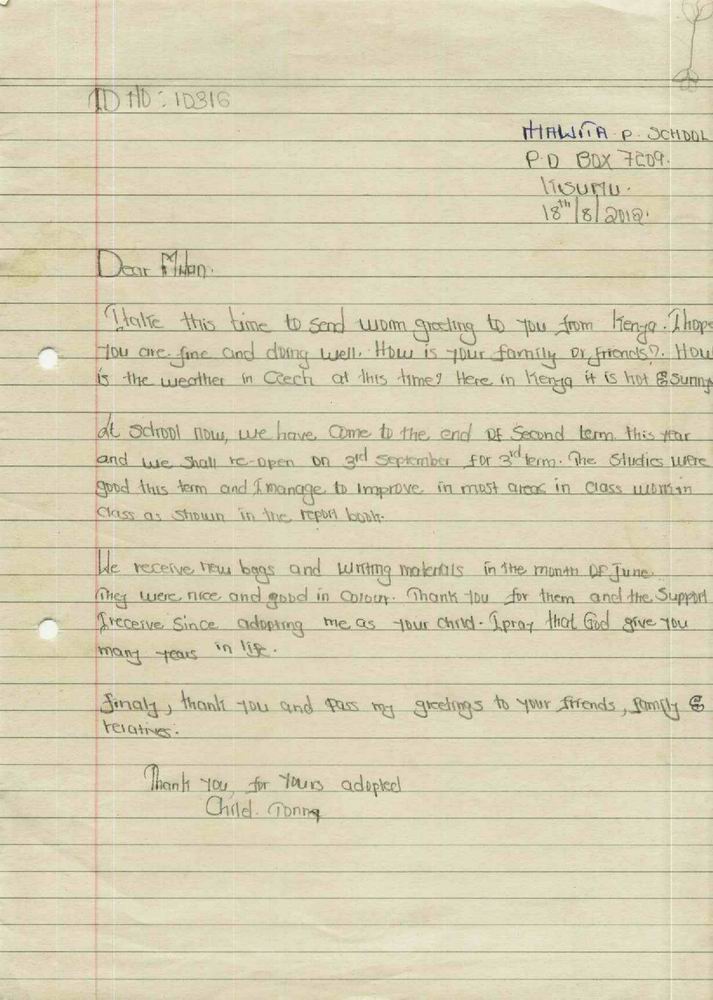 ID NO: 10316
P. SCHOOL
P.O BOX 7209.
KISUMU.
18th/8/2012.
Dear Milan.
I take this time to send worm greeting to you from Kenya. I hope
you are fine and doing well. How is your family or friends?. How
is the weather in Czech at this time? Here in Kenya it is hot & sunny
At school now, we have come to the end of second term this year
and we shall re-open on 3rd september for 3rd term. The studies were
good this term and I manage to improve in most areas in class work in
class as shown in the report book.
We receive new bags and writing materials in the month of June.
They were nice and good in colour. Thank you for them and the support
I receive since adopting me as your child. I pray that God give you
many years in life.
Finaly, thank you and pass my greetings to your friends, family &
relatives.
Thank you, for yours adopted
Child. Tonny